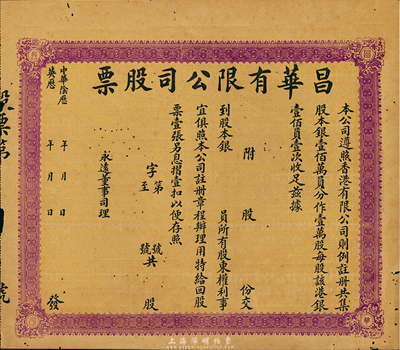 昌華有限公司股票
本公司遵照香港有限公司則例註冊共集
股本銀壹佰萬員分作壹萬股每股該港銀
壹佰員壹次收足茲據
附股份交
到股本銀 員所有股東權利事
宜俱照本公司註冊章程辦理用特給回股
票壹張另息摺壹扣以便存照
字第 號
至 號共 股
永遠董事司理
中華陰歷 年 月 日
英歷 年 月 日 發
股票第 號
上海陽明拍賣